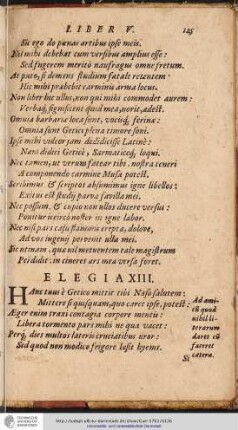 LIBER V. 125
Sic ego do pœnas artibus ipse meis.
Et mihi debebat cum versibus amplius esse:
Sed fugerem merito naufragus omne fretum.
At puto, si demens studium fatale retentem:
Hic mihi præbebit carminis arma locus.
Non liber hic ullus, non qui mihi commodet aurem:
Verbaq́; significent quid mea, norit, adest.
Omnia barbariæ loca sunt, vocisq́; ferinæ:
Omnia sunt Getici plena timore soni.
Ipse mihi videor jam dedidicisse Latinè:
Nam didici Geticè, Sarmaticeq́; loqui.
Nec tamen, ut verum fatear tibi, nostra teneri
A componendo carmine Musa potest.
Scribimus & scriptos absumimus igne libellos:
Exitus est studij parva favilla mei.
Nec possum, & cupio non ullos ducere versus:
Ponitur iccirco noster in igne labor.
Nec nisi pars casu flammis erepta, dolove,
Ad vos ingenij pervenit ulla mei.
Sic utinam, quæ nil metuentem tale magistrum
Perdidit: in cineres ars mea versa foret.
ELEGIA XIII.
HAnc tuus è Getico mittit tibi Naso salutem:
Mittere si quisquam, quo caret ipse, potest:
Æger enim traxi contagia corpore mentis:
Libera tormento pars mihi ne qua vacet:
Perq́; dies multos lateris cruciatibus uror:
Sed quod non modico frigore læsit hyems.
Ad ami-
cũ quod
nihil li-
terarum
daret cũ
faceret
cætera.
Si